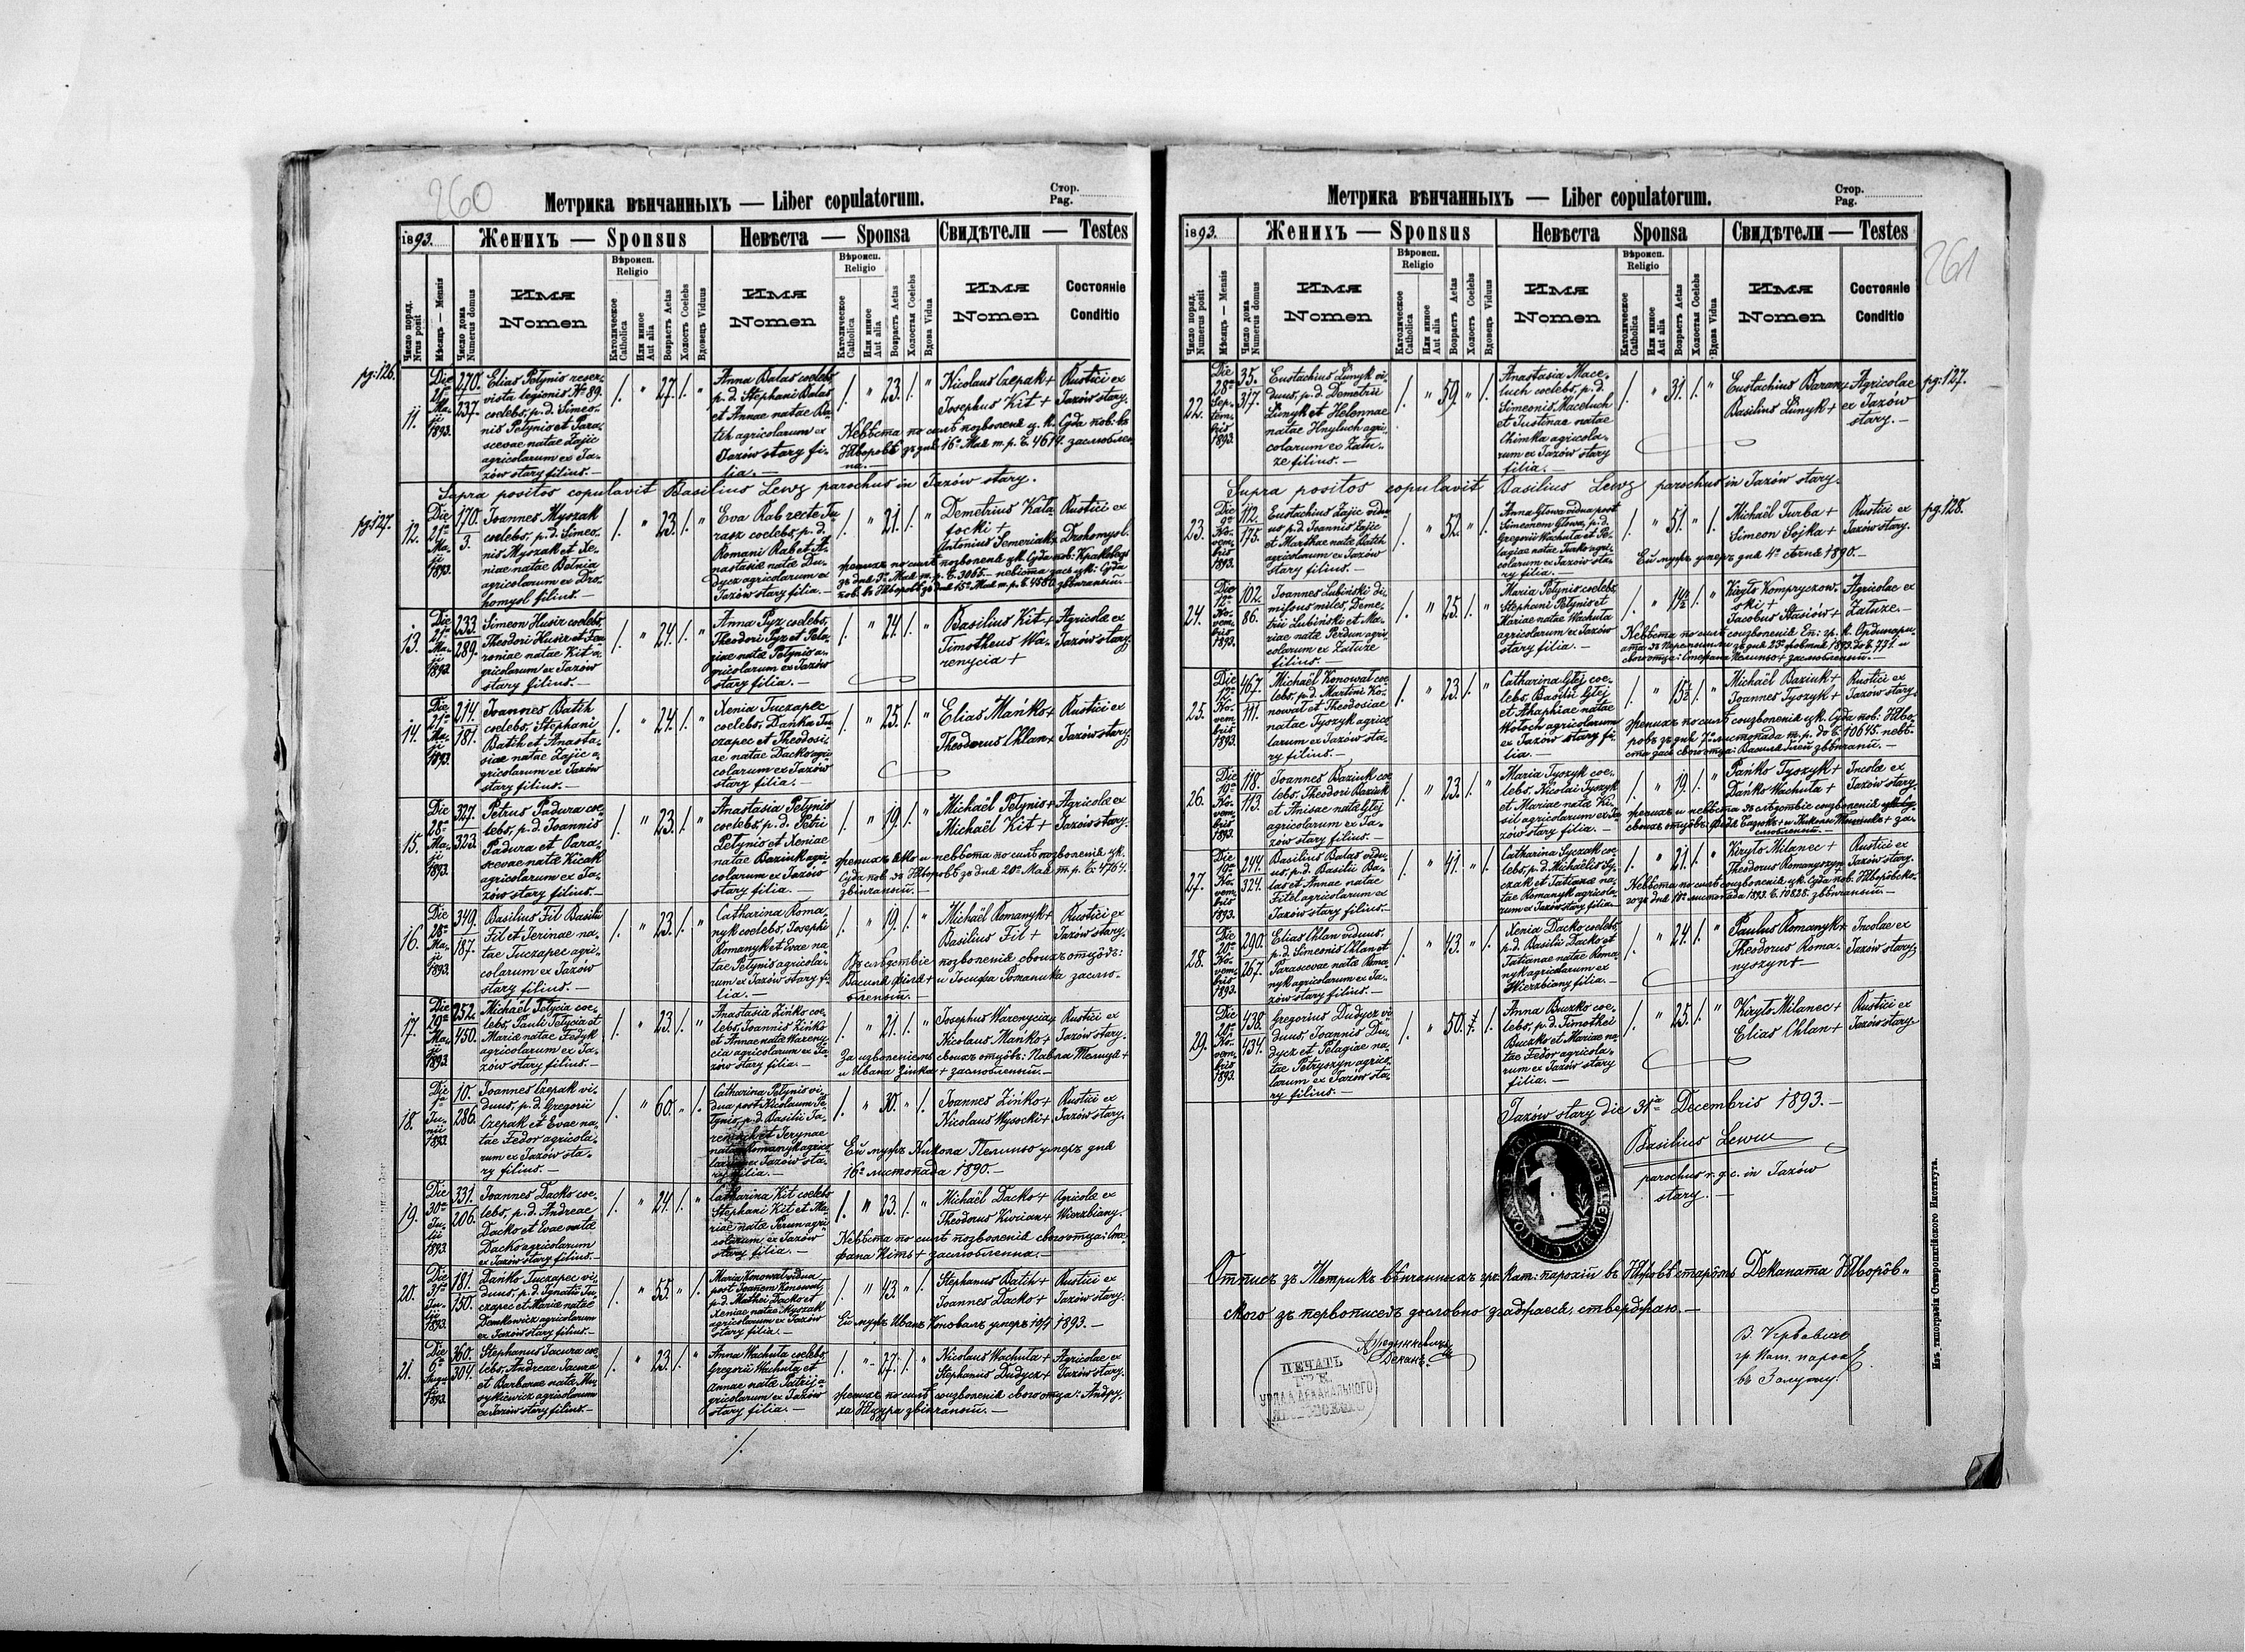 260
Метрика вѣнчанныхъ — Liber copulatorum.
Стор.
Pag.
1893.
Женихъ — Sponsus
Невѣста — Sponsa
Свидѣтели — Testes
Число поряд.
Nrus posit
Мѣсяцъ — Mensis
Число дома
Numerus domus
Имя
Nomen
Вѣроисп.
Religio
Католическое
Catholica
Или инное
Aut alia
Возрастъ Aetas
Холостъ Coelebs
Вдовецъ Viduus
Имя
Nomen
Вѣроисп.
Religio
Католическое
Catholica
Или инное
Aut alia
Возрастъ Aetas
Холостая Coelebs
Вдова Vidua
Имя
Nomen
Состояніе
Conditio
pg: 126.
11.
Die
21ª
Ma-
ji
1893.
270.
237.
Elias Petynio reser-
vista legionis № 89.
coelebs, p. d. Simeo-
nis Petynio et Para-
scevae natae Zajic
agricolarum ex Ja-
zów stary filius. —
/. " 27. /. "
Anna Balas coelebs,
p. d. Stephani Balas
et Annae natae Ba-
tih agricolarum ex
Jazów stary fi-
lia. —
/. " 23. /. "
Nicolaus Czepak +
Josephus Kit +
Rustici ex
Jazów stary.
Невѣста по силѣ позволенія ц. к. Суда пов. въ
Яворовѣ зъ дня 16º Мая т. р. Ч. 4614. заслюблен-
на. —
Supra positos copulavit Basilius Lewg parochus in Jazów stary.
pg: 127.
12.
Die
21ª
Ma-
ji
1893.
170.
3.
Joannes Myszak
coelebs, p. d. Simeo-
nis Myszak et Xe-
niae natae Betnia
agricolarum ex Dro-
homysl filius. —
/. " 23. /. "
Eva Rab recte Ju-
rasz coelebs, p. d.
Romani Rab et A-
nastasiae natae Du-
dycz agricolarum ex
Jazów stary filia. —
/. " 21. /. "
Demetrius Kata-
tocki +
Antonius Semeriak +
Rustici ex
Drohomysl.
13.
Die
21ª
Ma-
ji
1893.
233.
289.
Simeon Husir coelebs,
Theodori Husir et Fev-
roniae natae Kit a-
gricolarum ex Jazów
stary filius. —
/. " 24. /. "
Anna Pyz coelebs,
Theodori Pyz et Pela-
giae natae Petynio a-
gricolarum ex Jazów
stary filia. —
/. " 24. /. "
Basilius Kit +
Timotheus Wa-
renycia +
Agricolae ex
Jazów stary.
14.
Die
21ª
Ma-
ji
1893.
214.
181.
Joannes Batih
coelebs, Stephani
Batih et Anasta-
siae natae Zajic a-
gricolarum ex Jazów
stary filius. —
/. " 24. /. "
Xenia Tuczapec
coelebs, Dańka Tu-
czapec et Theodosi-
ae natae Dacko agri-
colarum ex Jazów
stary filia. —
/. " 25. /. "
Elias Mańko +
Theodorus Chlan +
Rustici ex
Jazów stary.
15.
Die
28ª
Ma-
ji
1893.
327.
323.
Petrus Padura coe-
lebs, p. d. Joannis
Padura et Para-
scevae natae Kicak
agricolarum ex Ja-
zów stary filius. —
/. " 23. /. "
Anastasia Petynio
coelebs, p. d. Petri
Petynio et Xeniae
natae Baziuk agri-
colarum ex Jazów
stary filia. —
/. " 19. /. "
Michaël Petynio +
Michaël Kit +
Agricolae ex
Jazów stary.
Суда пов. въ Яворовѣ зъ дня 20º Мая т. р. Ч. 4764.
звѣнчаный. —
16.
Die
28ª
Ma-
ji
1893.
349.
187.
Basilius Fil Basilii
Fil et Jerinae na-
tae Tuczapec agri-
colarum ex Jazów
stary filius. —
/. " 23. /. "
Catharina Roma-
nyk coelebs, Josephi
Romanyk et Evae na-
tae Petynio agricola-
rum ex Jazów stary fi-
lia. —
/. " 19. /. "
Michaël Romanyk +
Basilius Fil +
Rustici ex
Jazów stary.
Въ слѣдствіе позволенія своихъ отцôвъ:
Василя Філя + и Іосифа Романика заслю-
бленный. —
17.
Die
29ª
Ma-
ji
1893.
252.
450.
Michaël Petycia coe-
lebs, Pauli Petycia et
Mariae natae Fedyk
agricolarum ex Ja-
zów stary filius. —
/. " 23. /. "
Anastasia Zińko coe-
lebs, Joannis Zińko
et Annae natae Wareny-
cia agricolarum ex Ja-
zów stary filia. —
/. " 21. /. "
Josephus Warenycia +
Nicolaus Mańko +
Rustici ex
Jazów stary.
За изволеніемъ своихъ отцôвъ: Павла Телиця +
и Ивана Зінка + заслюбленный. —
18.
Die
Ju-
nii
1893.
10.
286.
Joannes Czepak vi-
duus, p. d. Gregorii
Czepak et Evae na-
tae Fedor agricola-
rum ex Jazów sta-
ry filius. —
/. " 60. " /.
Catharina Petynio vi-
dua post Nicolaum Pe-
tynio, p. d. Basilii Ja-
et Jerynae
natae Romanyk agrico-
larum ex Jazów sta-
ry filia. —
/. " 30. " /.
Joannes Zińko +
Nicolaus Wysocki +
Rustici ex
Jazów stary.
Ей мужъ Никола Пелиньо умеръ дня
16º листопада 1890. —
19.
Die
30ª
Ju-
lii
1893.
331.
206.
Joannes Dacko coe-
lebs, p. d. Andreae
Dacko et Evae natae
Dacko agricolarum
ex Jazów stary filius. —
/. " 24. /. "
Catharina Kit coelebs
Stephani Kit et Ma-
riae natae Perun agri-
colarum ex Jazów
stary filia. —
/. " 23. /. "
Michaël Dacko +
Theodorus Kurian +
Agricolae ex
Wierzbiany.
Невѣста по силѣ позволенія своего отца: Сте-
фана Китъ + заслюбленна. —
20.
Die
31ª
Ju-
lii
1893.
181.
150.
Dańko Tuczapec vi-
duus, p. d. Ignatii Tu-
czapec et Mariae natae
Demkowicz agricolarum
ex Jazów stary filius. —
/. " 55. " /.
Maria Konowal vidua
post Joannem Konowal,
p. d. Mathei Dacko et
Xeniae natae Myszak
agricolarum ex Jazów
stary filia. —
/. " 43. " /.
Stephanus Batih +
Joannes Dacko +
Rustici ex
Jazów stary.
Ей мужъ Иванъ Коноваль умеръ 10/4 1893. —
21.
Die
6ª
Augu-
sti
1893.
360.
304.
Stephanus Jacura coe-
lebs, Andreae Jacura
et Barbarae natae Mu-
sykiewicz agricolarum
ex Jazów stary filius. —
/. " 23. /. "
Anna Wachuta coelebs,
Gregorii Wachuta et
Annae natae Patrij a-
gricolarum ex Jazów
stary filia. —
/. " 27. /. "
Nicolaus Wachuta +
Stephanus Dudycz +
Agricolae ex
Jazów stary.
женихъ по силѣ соизволенія своего отца: Андру-
ха Яцура звѣнчаный. —
261
Метрика вѣнчанныхъ — Liber copulatorum.
Стор.
Pag.
1893.
Женихъ — Sponsus
Невѣста Sponsa
Свидѣтели — Testes
Число поряд.
Numerus posit
Мѣсяцъ — Mensis
Число дома
Numerus domus
Имя
Nomen
Вѣроисп.
Religio
Католическое
Catholica
Или инное
Aut alia
Возрастъ Aetas
Холостъ Coelebs
Вдовецъ Viduus
Имя
Nomen
Вѣроисп.
Religio
Католическое
Catholica
Или инное
Aut alia
Возрастъ Aetas
Холостая Coelebs
Вдова Vidua
Имя
Nomen
Состояніе
Conditio
22.
Die
28ª
Sep-
tem-
bris
1893.
35.
317.
Eustachius Lunyk vi-
duus, p. d. Demetrii
Lunyk et Helennae
natae Hnyluch agri-
colarum ex Zatu-
że filius. —
/. " 59. " /.
Anastasia Mace-
luch coelebs, p. d.
Simeonis Maceluch
et Justinae natae
Chimka agricola-
rum ex Jazów stary
filia. —
/. " 31. /. "
Eustachius Baran +
Basilius Lunyk +
Agricolae
ex Jazów
stary. —
pg: 127.
Supra positos copulavit Basilius Lewg parochus in Jazów stary.
23.
Die
9ª
No-
vem-
bris
1893.
112.
175.
Eustachius Zajic vidu-
us p. d. Joannis Zajic
et Marthae natae Batih
agricolarum ex Jazów
stary filius. —
/. " 52. " /.
Anna Glowa vidua post
Simeonem Glowa, p. d.
Gregorii Wachuta et Pe-
lagiae natae Turko agri-
colarum ex Jazów sta-
ry filia. —
/. " 51. " /.
Michaël Turba +
Simeon Sojka +
Rustici ex
Jazów stary.
pg: 128.
Ей мужъ умеръ дня 4º Сѣчня 1890. —
24.
Die
12ª
No-
vem-
bris
1893.
102.
86.
Joannes Lubiński di-
missus miles, Deme-
trii Lubiński et Ma-
riae natae Perdun agri-
colarum ex Zatuże
filius. —
/. " 25. /. "
Maria Petynio coelebs,
Stephani Petynio et
Mariae natae Wachuta
agricolarum ex Jazów
stary filia. —
/. " 14½ /. "
Kiryło Kompryczow-
ski +
Jacobus Stasiów +
Agricolae ex
Zatuże. —
25.
Die
12ª
No-
vem-
bris
1893.
467.
111.
Michaël Konowal coe-
lebs, p. d. Martini Ko-
nowal et Theodosiae
natae Tyszyk agrico-
larum ex Jazów sta-
ry filius. —
/. " 23. /. "
Catharina Glej coe-
lebs, Basilii Glej
et Ahaphiae natae
Wołoch agricolarum
ex Jazów stary fi-
lia. —
/. " 15½ /. "
Michaël Baziuk +
Joannes Tyszyk +
Rustici ex
Jazów stary.
26.
Die
19ª
No-
vem-
bris
1893.
118.
113.
Joannes Baziuk coe-
lebs, Theodori Baziuk
et Anisae natae Glej
agricolarum ex Ja-
zów stary filius. —
/. " 23. /. "
Maria Tyszyk coe-
lebs, Nicolai Tyszyk
et Mariae natae Ki-
sil agricolarum ex Ja-
zów stary filia. —
/. " 19. /. "
Pańko Tyszyk +
Dańko Wachuta +
Incolae ex
Jazów stary.
27.
Die
19ª
No-
vem-
bris
1893.
244.
324.
Basilius Balas vidu-
us, p. d. Basilii Ba-
las et Annae natae
Fizel agricolarum ex
Jazów stary filius. —
/. " 41. " /.
Catharina Syczak coe-
lebs, p. d. Michaelis Sy-
czak et Tatianae na-
tae Romanyk agricola-
rum ex Jazów stary filia. —
/. " 21. /. "
Kiryło Milanec +
Theodorus Romanyszyn +
Rustici ex
Jazów stary.
28.
Die
20ª
No-
vem-
bris
1893.
290.
267.
Elias Chlan viduus,
p. d. Simeonis Chlan et
Parascevae natae Roma-
nyk agricolarum ex Ja-
zów stary filius. —
/. " 43. " /.
Xenia Dacko coelebs,
p. d. Basilii Dacko et
Tatianae natae Roma-
nyk agricolarum ex
Wierzbiany filia. —
/. " 24. /. "
Paulus Romanyk +
Theodorus Roma-
nyszyn +
Incolae ex
Jazów stary.
29.
Die
20ª
No-
vem-
bris
1893.
438.
434.
Gregorius Dudycz vi-
duus, Joannis Du-
dycz et Pelagiae na-
tae Petryszyn agrico-
larum ex Jazów sta-
ry filius. —
/. " 50. /.
Anna Buczko coe-
lebs, p. d. Timothei
Buczko et Mariae na-
tae Fedor agricola-
rum ex Jazów stary
filia. —
/. " 25. /. "
Kiryło Milanec +
Elias Chlan +
Rustici ex
Jazów stary.
Jazów stary die 31ª Decembris 1893. —
Basilius Lewg
parochus r. g. c. in Jazów
stary. —
Отписъ зъ Метрикъ вѣнчанныхъ гр. кат. парохіи въ Язôвѣ старôмъ Деканата Яворôв-
ского зъ первописей дословно згаджаеся, стверджаю. —
Деканъ.
ПЕЧАТЬ
ГР. К.
УРЯДА ДЕКАНАЛЬНОГО
гр. кат. парох
Изъ типографіи Ставропигійского Института.